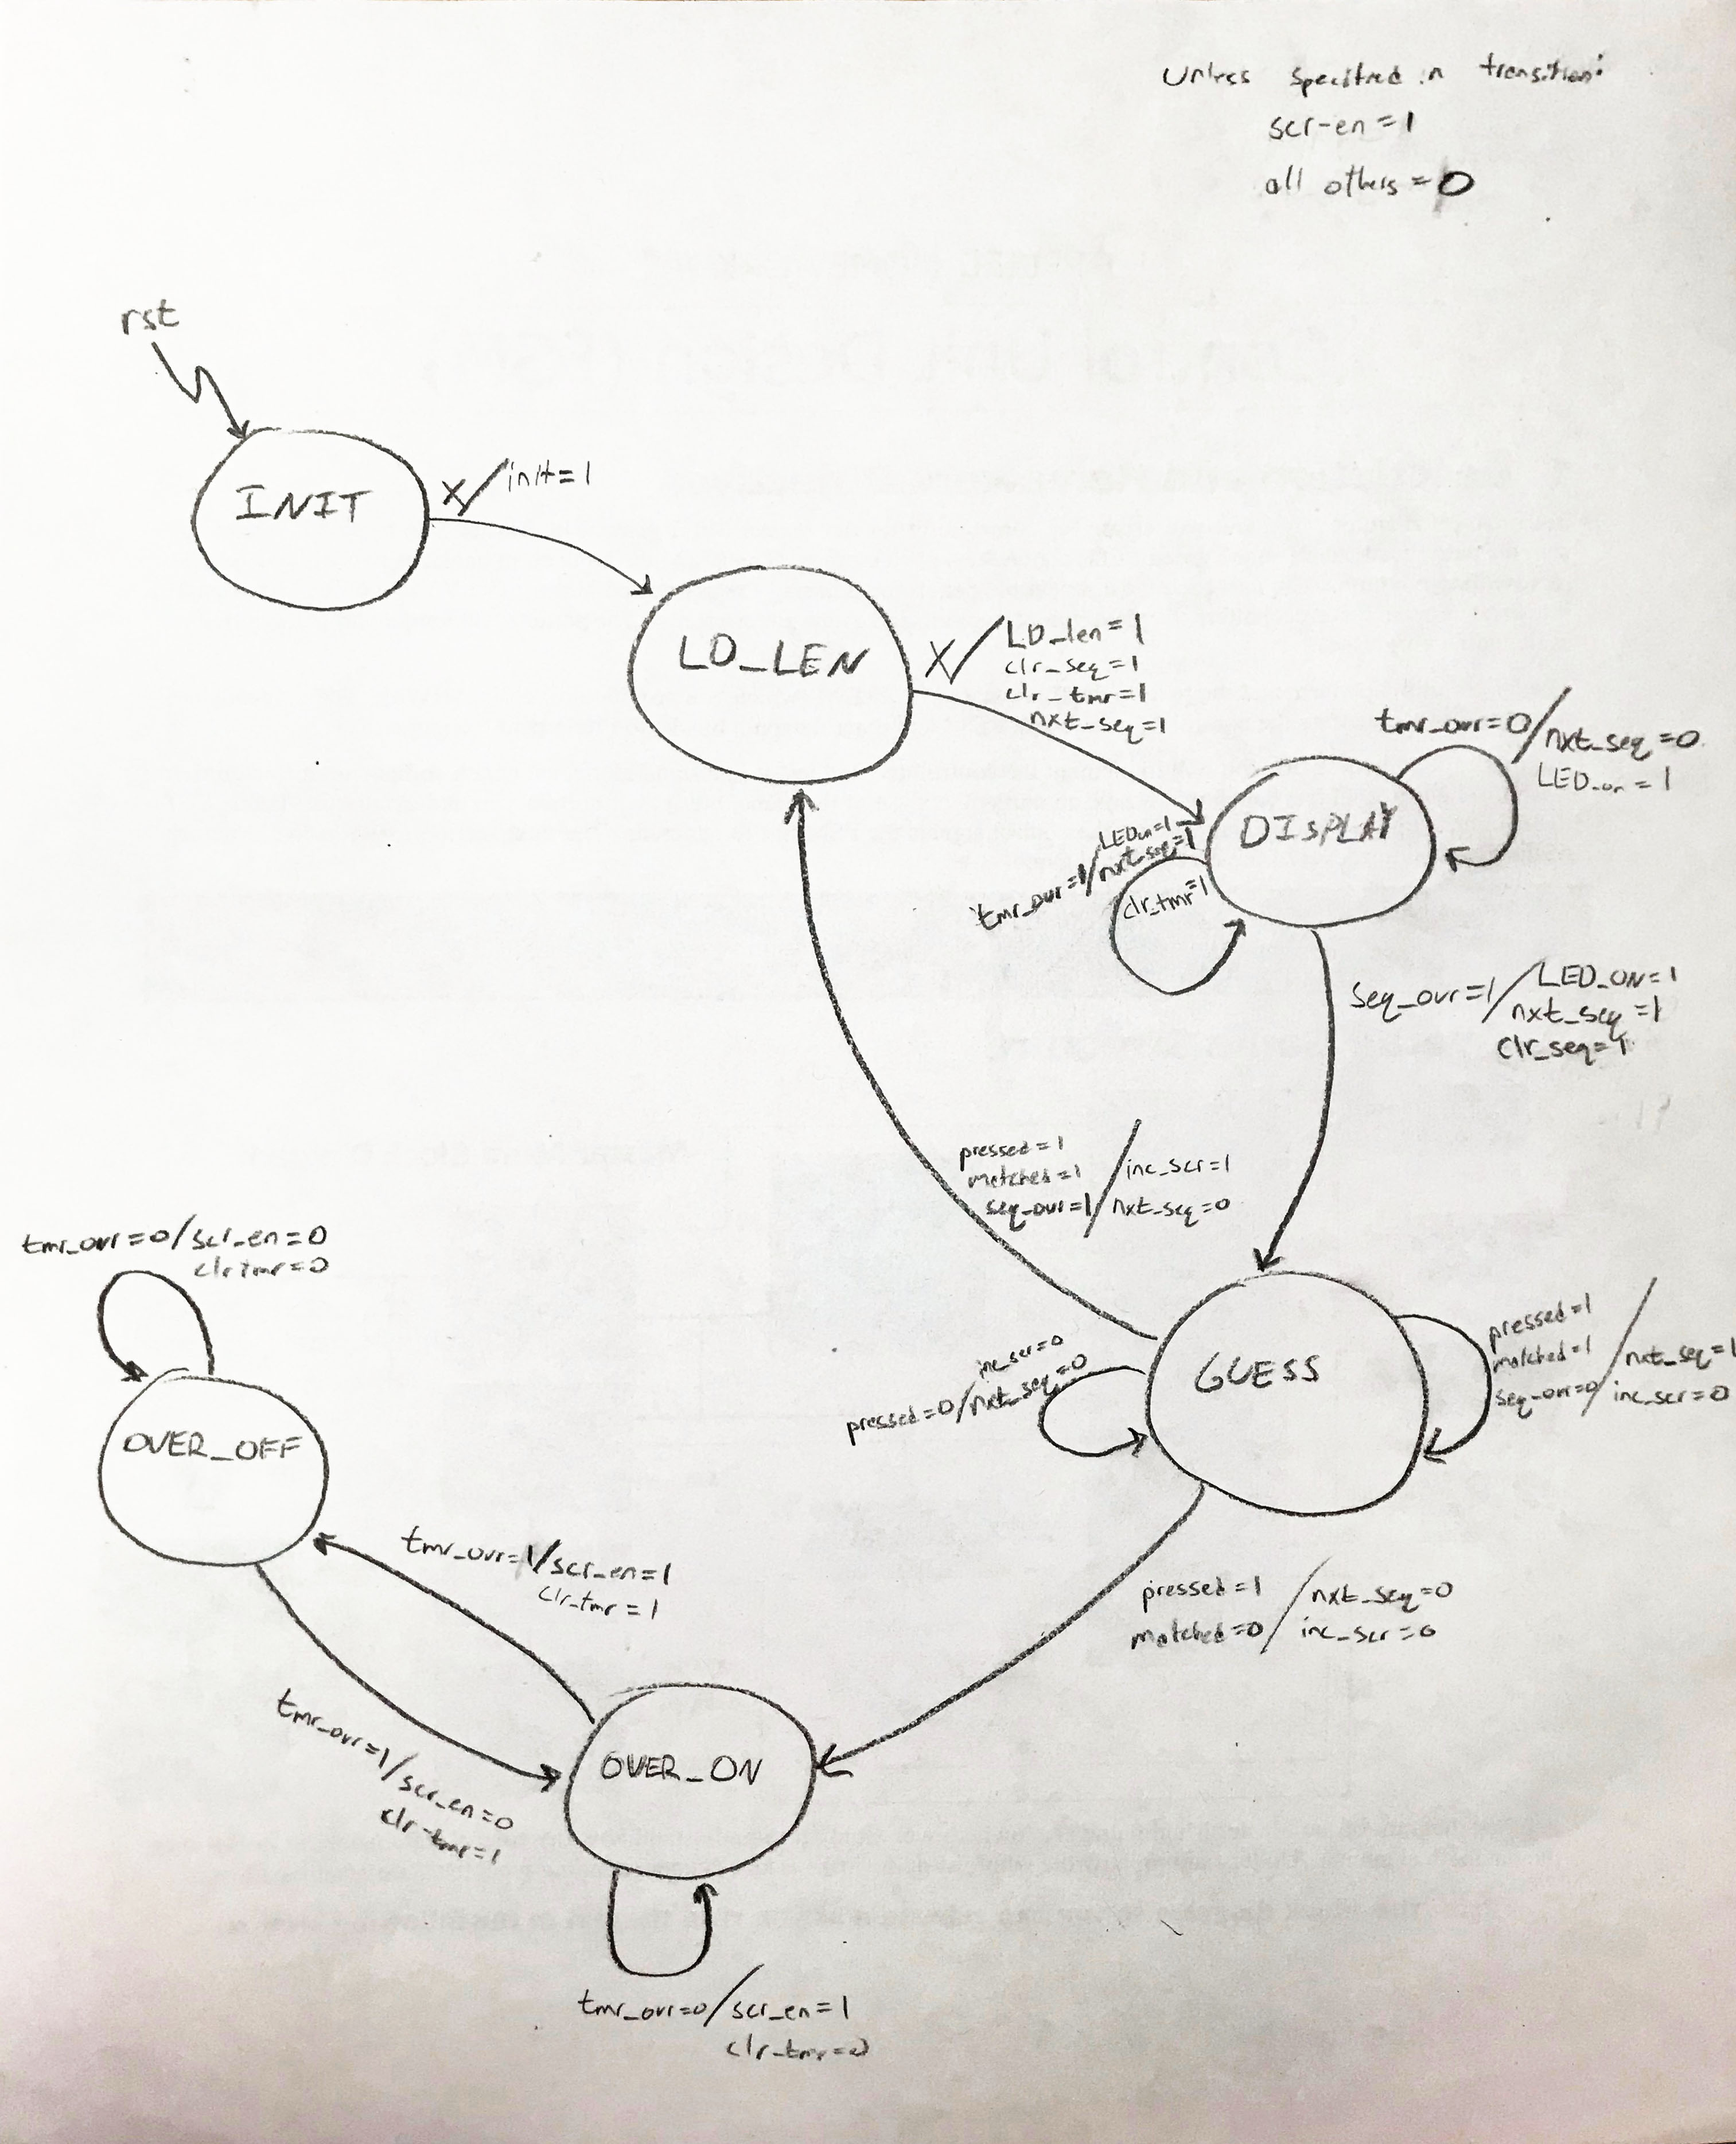 Unless specified in transition:
scr-en=1
all others=0
rst
INIT
X/init=1
LD_LEN
X/LD_len=1
clr_seq=1
clr_tmr=1
nxt_seq=1
tmr_ovr=0/nxt_seq=0
LED_on=1
DISPLAY
LEDon=1
tmr_ovr=1/nxt_seq=1
clr_tmr=1
seq_ovr=1/LED_ON=1
nxt_seq=1
clr_seq=1
pressed=1
matched=1/inc_scr=1
seq_ovr=1/nxt_seq=0
tmr_ovr=0/scr_en=0
clr tmr=0
GUESS
inc_scr=0
pressed=0/nxt_seq=0
pressed=1
matched=1/nxt_seq=1
seq_ovr=0/inc_scr=0
OVER_OFF
tmr_ovr=1/scr_en=1
clr_tmr=1
pressed=1/nxt_seq=0
matched=0/inc_scr=0
tmr_ovr=1/scr_en=0
clr-tmr=1
OVER_ON
tmr_ovr=0/scr_en=1
clr-tmr=0